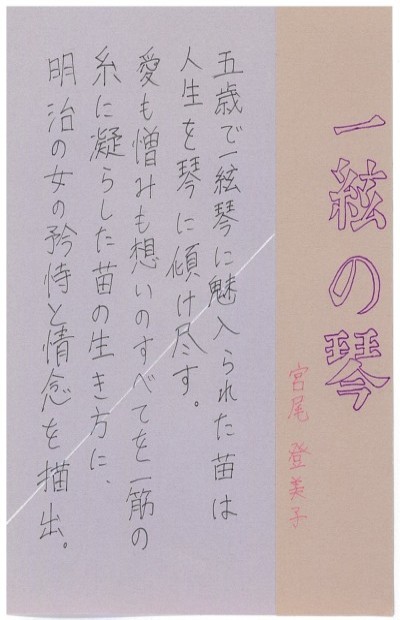 一絃の琴
宮尾登美子
五歳で一絃琴に魅入られた苗は
人生を琴に傾け尽す。
愛も憎みも想いのすべてを一筋の
糸に凝らした苗の生き方に、
明治の女の矜恃と情念を描出。